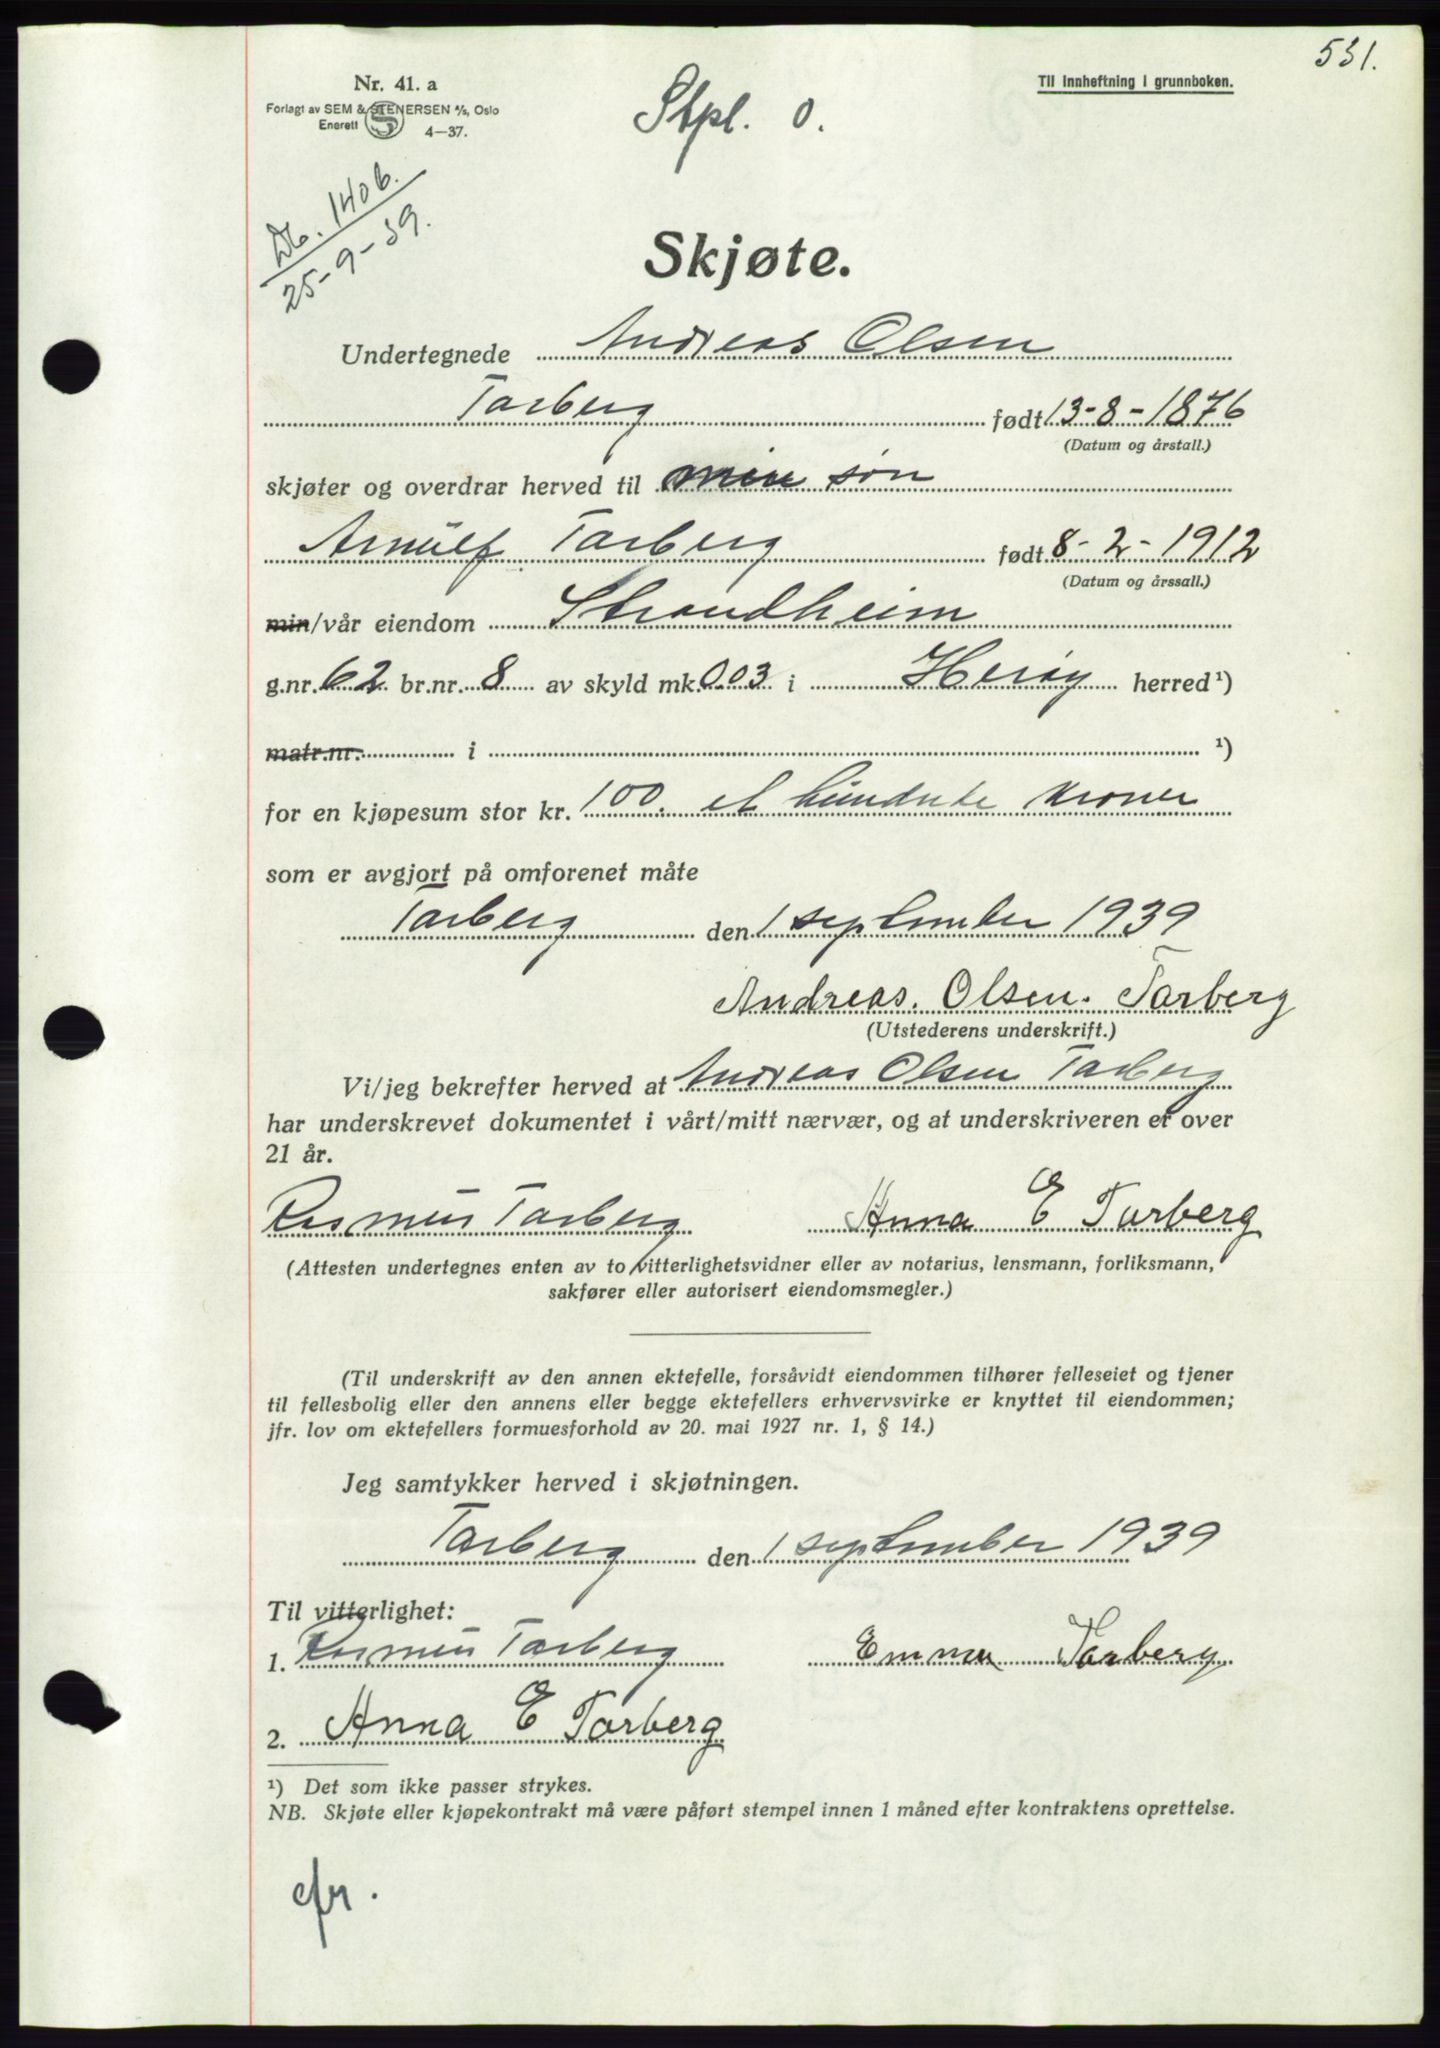 531.
Nr. 41. a
Forlagt av SEM & STENERSEN A/S, Oslo
Enerett
4—37.
Til innheftning i grunnboken.
Stpl. 0.
Db. 1406.
25-9-39.
Skjøte.
Undertegnede Andreas Olsen
Tarberg født 13-8-1876
(Datum og årstall.)
skjøter og overdrar herved til min søn
Arnulf Tarberg født 8-2-1912
(Datum og årssall.)
min/vår eiendom Strandheim
g.nr. 62 br.nr. 8 av skyld mk. 0.03 i Herøy herred¹)
matr.nr. i ¹)
for en kjøpesum stor kr. 100. et hundrede kroner
som er avgjort på omforenet måte
Tarberg den 1 september 1939
Andreas. Olsen. Tarberg
(Utstederens underskrift.)
Vi/jeg bekrefter herved at Andreas Olsen Tarberg
har underskrevet dokumentet i vårt/mitt nærvær, og at underskriveren er over
21 år.
Rasmus Tarberg Anna E Tarberg
(Attesten undertegnes enten av to vitterlighetsvidner eller av notarius, lensmann, forliksmann,
sakfører eller autorisert eiendomsmegler.)
(Til underskrift av den annen ektefelle, forsåvidt eiendommen tilhører felleseiet og tjener
til fellesbolig eller den annens eller begge ektefellers erhvervsvirke er knyttet til eiendommen;
jfr. lov om ektefellers formuesforhold av 20. mai 1927 nr. 1, § 14.)
Jeg samtykker herved i skjøtningen.
Tarberg den 1 september 1939
Til vitterlighet:
1. Rasmus Tarberg Emma Tarberg
2. Anna E Tarberg
¹) Det som ikke passer strykes.
NB. Skjøte eller kjøpekontrakt må være påført stempel innen 1 måned efter kontraktens oprettelse.